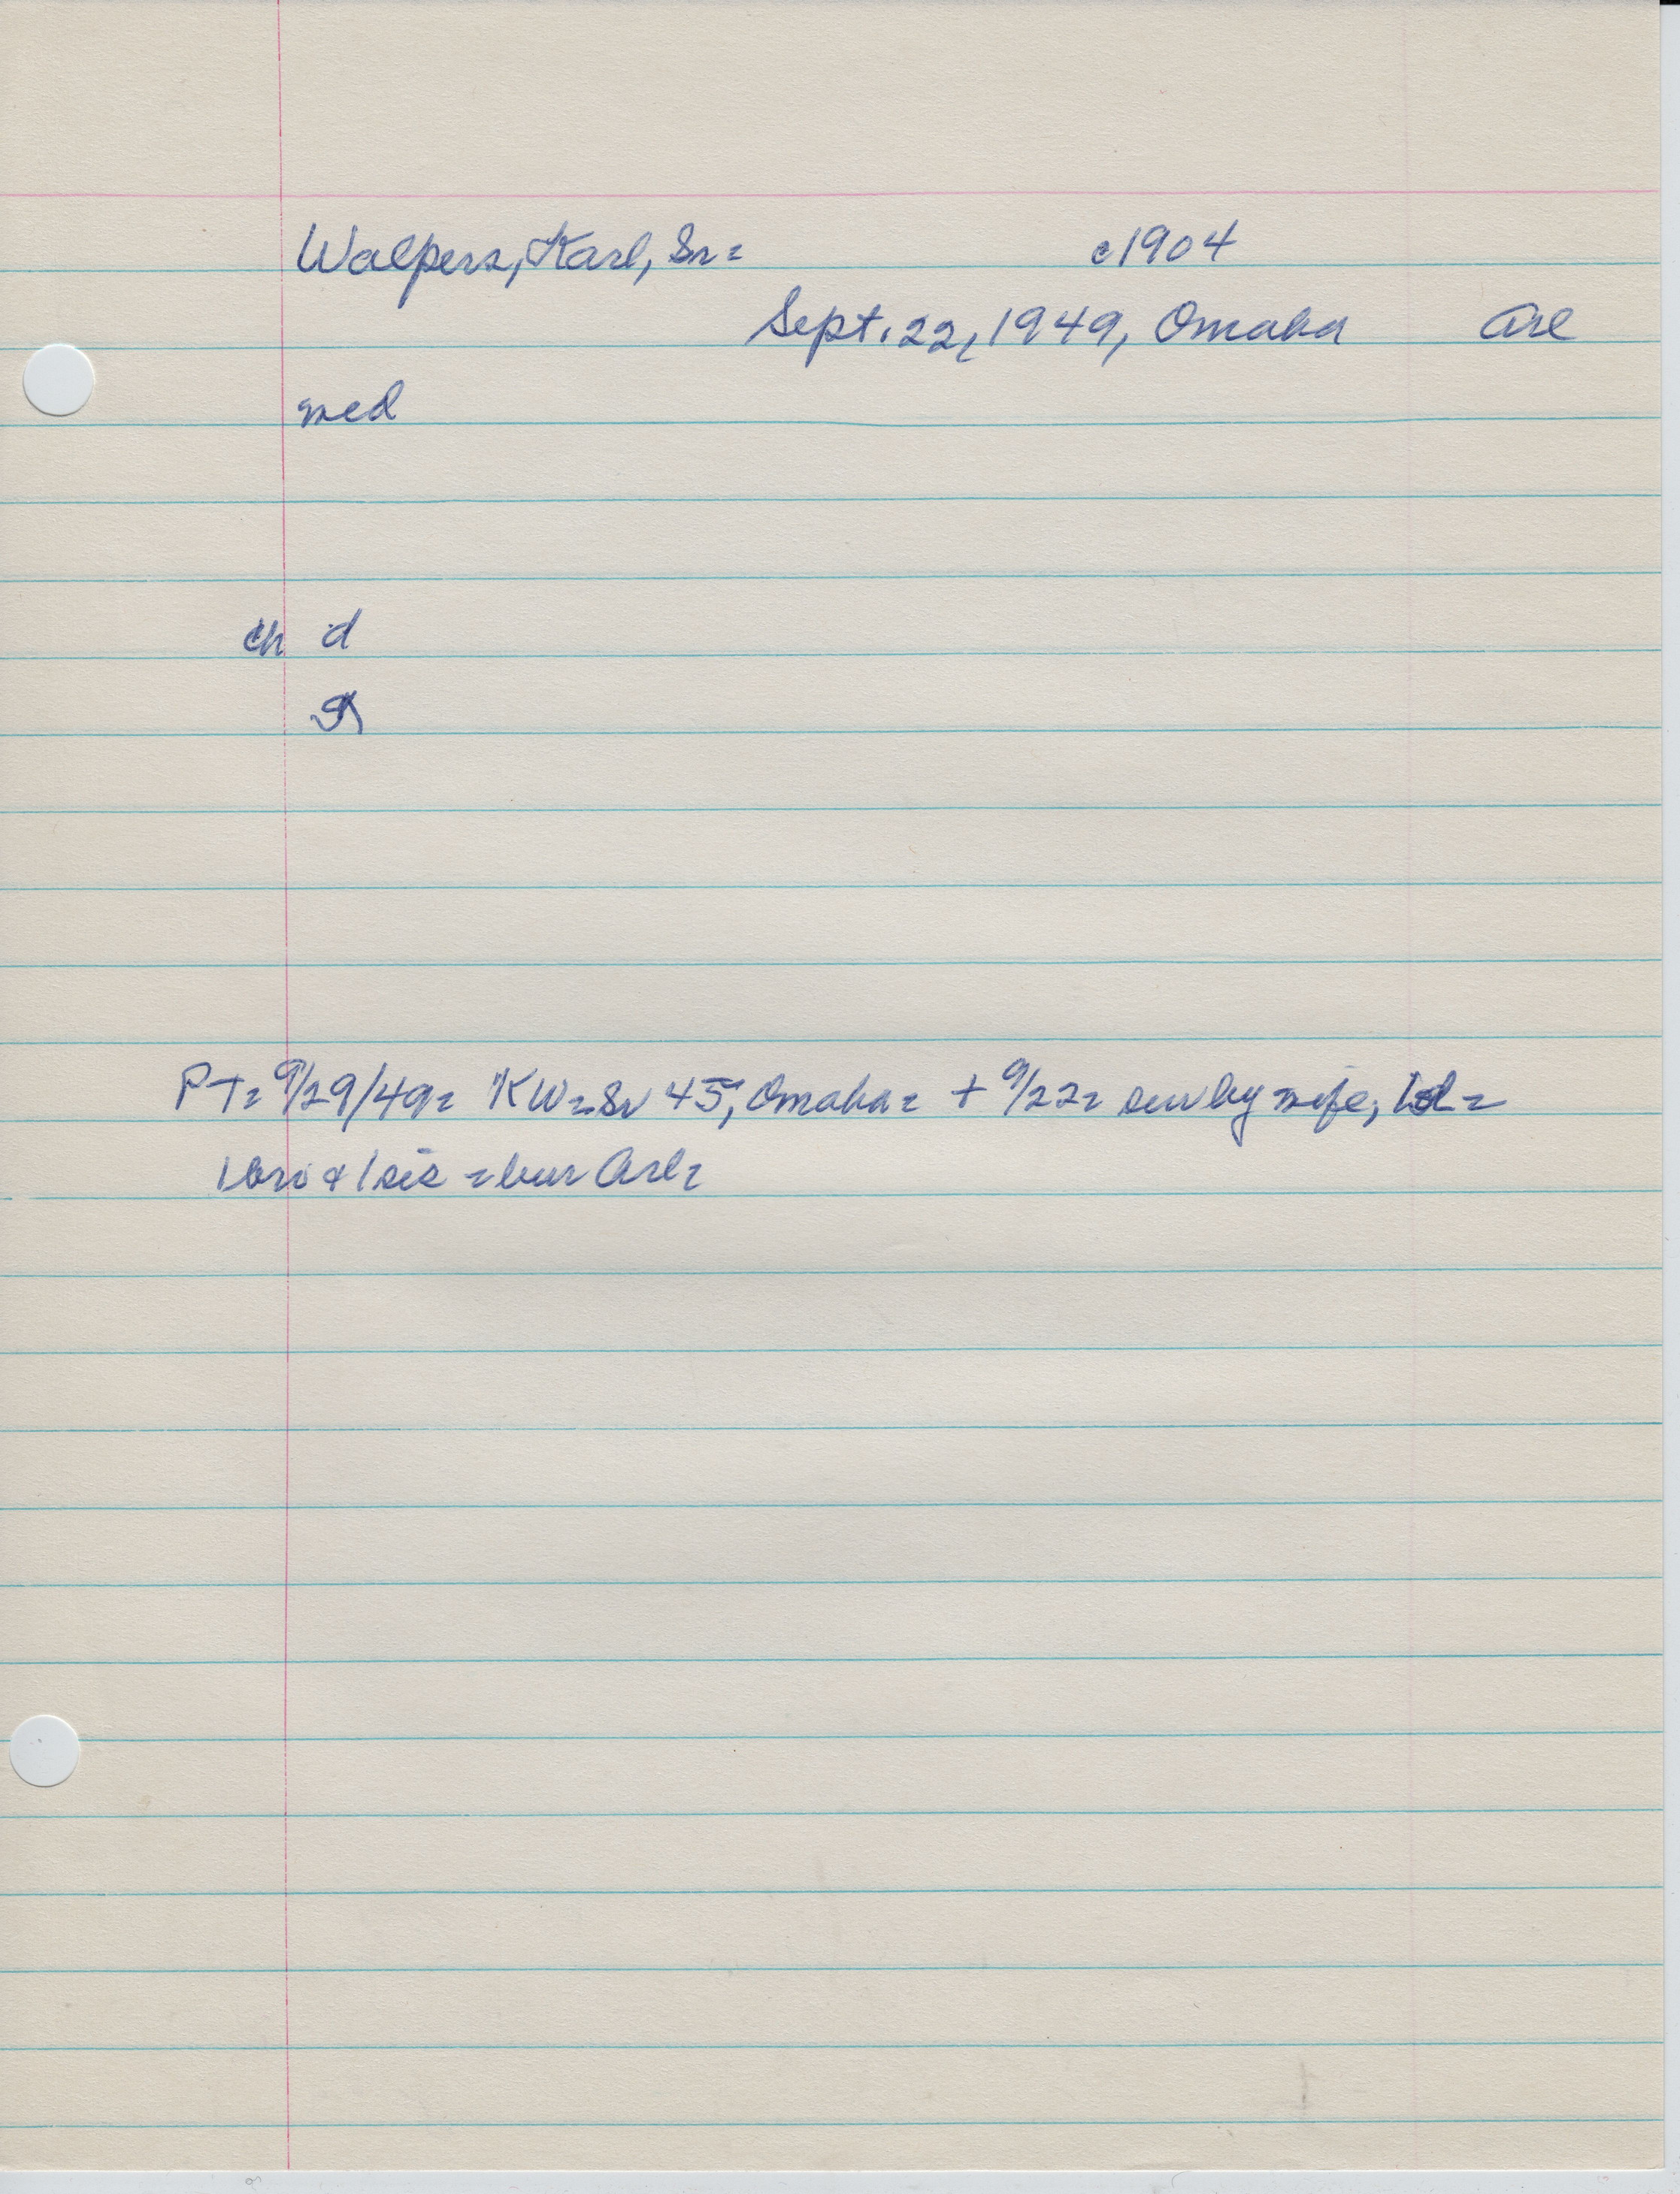 Walpers, Karl, Sr= c1904
Sept. 22, 1949, Omaha Arl
med
ch d
PT= 9/29/49= KW=Sr 45, Omaha= + 9/22= sur by wife, 1d=
1 bro & 1 sis =bur Arl=